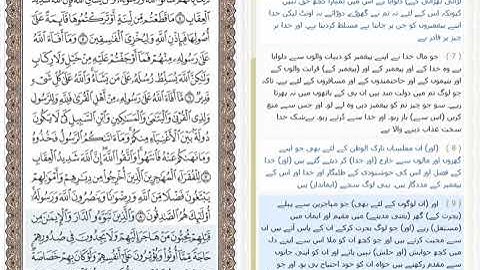 کیونکہ اس کے لئے نہ تم نے گھوڑے دوڑائے نہ اونٹ لیکن خدا
اپنے پیغمبروں کو جن پر چاہتا ہے مسلط کردیتا ہے۔ اور خدا ہر
چیز پر قادر ہے
(7) جو مال خدا نے اپنے پیغمبر کو دیہات والوں سے دلوایا
ہے وہ خدا کے اور پیغمبر کے اور (پیغمبر کے) قرابت والوں کے
اور یتیموں کے اور حاجتمندوں کے اور مسافروں کے لئے ہے۔ تاکہ
جو لوگ تم میں دولت مند ہیں ان ہی کے ہاتھوں میں نہ پھرتا
رہے۔ سو جو چیز تم کو پیغمبر دیں وہ لے لو۔ اور جس سے منع
کریں (اس سے) باز رہو۔ اور خدا سے ڈرتے رہو۔ بےشک خدا
سخت عذاب دینے والا ہے
(8) (اور) ان مفلسان تارک الوطن کے لئے بھی جو اپنے
گھروں اور مالوں سے خارج (اور جدا) کر دیئے گئے ہیں (اور)
خدا کے فضل اور اس کی خوشنودی کے طلبگار اور خدا اور اس کے
پیغمبر کے مددگار ہیں۔ یہی لوگ سچے (ایماندار) ہیں
(9) اور (ان لوگوں کے لئے بھی) جو مہاجرین سے پہلے
(ہجرت کے) گھر (یعنی مدینے) میں مقیم اور ایمان میں
(مستقل) رہے (اور) جو لوگ ہجرت کرکے ان کے پاس آتے ہیں ان
سے محبت کرتے ہیں اور جو کچھ ان کو ملا اس سے اپنے دل
میں کچھ خواہش (اور خلش) نہیں پاتے اور ان کو اپنی جانوں
سے مقدم رکھتے ہیں خواہ ان کو خود احتیاج ہی ہو۔ اور جو
ٱلْعِقَابِ ٤ مَا قَطَعْتُم مِّن لِّينَةٍ أَوْ تَرَكْتُمُوهَا قَآئِمَةً عَلَىٰٓ
أُصُولِهَا فَبِإِذْنِ ٱللَّهِ وَلِيُخْزِىَ ٱلْفَٰسِقِينَ ٥ وَمَآ أَفَآءَ ٱللَّهُ
عَلَىٰ رَسُولِهِۦ مِنْهُمْ فَمَآ أَوْجَفْتُمْ عَلَيْهِ مِنْ خَيْلٍ وَلَا رِكَابٍ
وَلَٰكِنَّ ٱللَّهَ يُسَلِّطُ رُسُلَهُۥ عَلَىٰ مَن يَشَآءُ وَٱللَّهُ عَلَىٰ كُلِّ شَىْءٍ
قَدِيرٌ ٦ مَّآ أَفَآءَ ٱللَّهُ عَلَىٰ رَسُولِهِۦ مِنْ أَهْلِ ٱلْقُرَىٰ فَلِلَّهِ وَلِلرَّسُولِ
وَلِذِى ٱلْقُرْبَىٰ وَٱلْيَتَٰمَىٰ وَٱلْمَسَٰكِينِ وَٱبْنِ ٱلسَّبِيلِ كَىْ لَا يَكُونَ
دُولَةًۢ بَيْنَ ٱلْأَغْنِيَآءِ مِنكُمْ وَمَآ ءَاتَىٰكُمُ ٱلرَّسُولُ فَخُذُوهُ
وَمَا نَهَىٰكُمْ عَنْهُ فَٱنتَهُوا۟ وَٱتَّقُوا۟ ٱللَّهَ إِنَّ ٱللَّهَ شَدِيدُ ٱلْعِقَابِ
٧ لِلْفُقَرَآءِ ٱلْمُهَٰجِرِينَ ٱلَّذِينَ أُخْرِجُوا۟ مِن دِيَٰرِهِمْ وَأَمْوَٰلِهِمْ
يَبْتَغُونَ فَضْلًا مِّنَ ٱللَّهِ وَرِضْوَٰنًا وَيَنصُرُونَ ٱللَّهَ وَرَسُولَهُۥٓ
أُو۟لَٰٓئِكَ هُمُ ٱلصَّٰدِقُونَ ٨ وَٱلَّذِينَ تَبَوَّءُو ٱلدَّارَ وَٱلْإِيمَٰنَ مِن
قَبْلِهِمْ يُحِبُّونَ مَنْ هَاجَرَ إِلَيْهِمْ وَلَا يَجِدُونَ فِى صُدُورِهِمْ
حَاجَةً مِّمَّآ أُوتُوا۟ وَيُؤْثِرُونَ عَلَىٰٓ أَنفُسِهِمْ وَلَوْ كَانَ بِهِمْ خَصَاصَةٌ